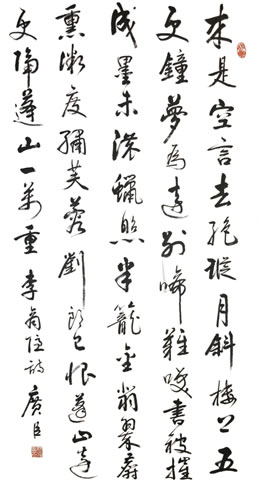 來是空言去絕蹤月斜樓上五
更鐘夢為遠別啼難喚書被催
成墨未濃蠟照半籠金翡翠麝
熏微度繡芙蓉劉郎已恨蓬山遠
更隔蓬山一萬重李商隱詩廣臣